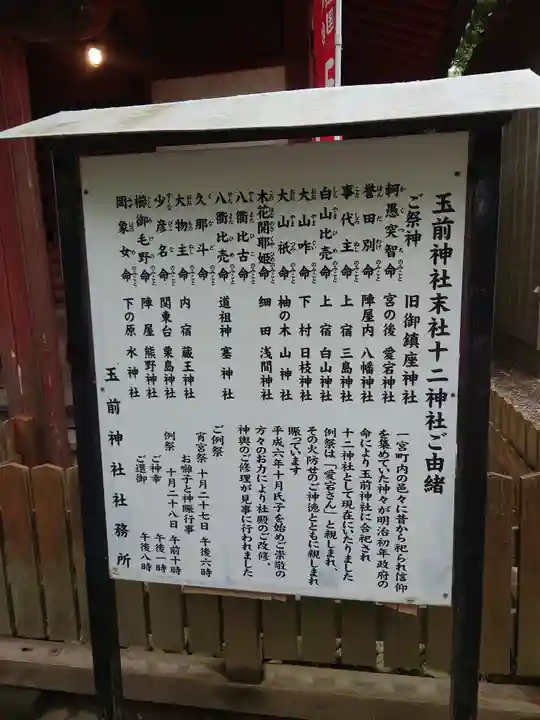 玉前神社末社十二神社ご由緒
ご祭神 旧御鎮座神社
軻愚突智命 宮の後 愛宕神社
誉田別命 陣屋内 八幡神社
事代主命 上宿 三島神社
白山比売命 上宿 白山神社
大山咋命 下村 日枝神社
大山祇命 柚の木 山神社
木花開耶姫命 細田 浅間神社
八衢比古命
八衢比売命 道祖神 塞神社
久那斗命
大物主命 内宿 蔵王神社
少彦名命 関東台 粟島神社
櫛御毛野命 陣屋 熊野神社
罔象女命 下の原 水神社
一宮町内の邑々に昔から祀られ信仰
を集めていた神々が明治初年政府の
命により玉前神社に合祀され
十二神社として現在にいたりました
例祭は「愛宕さん」と親しまれ、
その火防せのご神徳とともに親しまれ
賑っています
平成六年十月氏子を始めご崇敬の
方々のお力により社殿のご改修・
神輿のご修理が見事に行われました
ご例祭
宵宮祭 十月二十七日 午後六時
お囃子と神賑行事
例祭 十月二十八日 午前十時
ご神幸 午後一時
ご還御 午後八時
玉前神社社務所